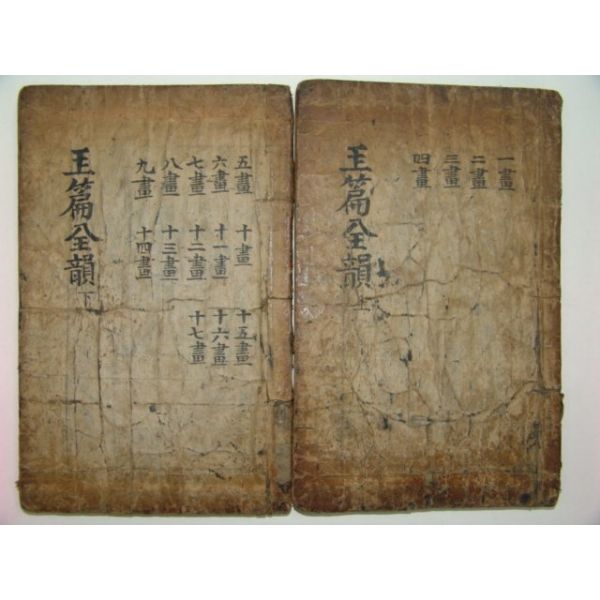 一畫
二畫
三畫
四畫
王篇全韻 上
五畫 十畫 十五畫
六畫 十一畫 十六畫
七畫 十二畫 十七畫
八畫 十三畫
九畫 十四畫
王篇全韻 下